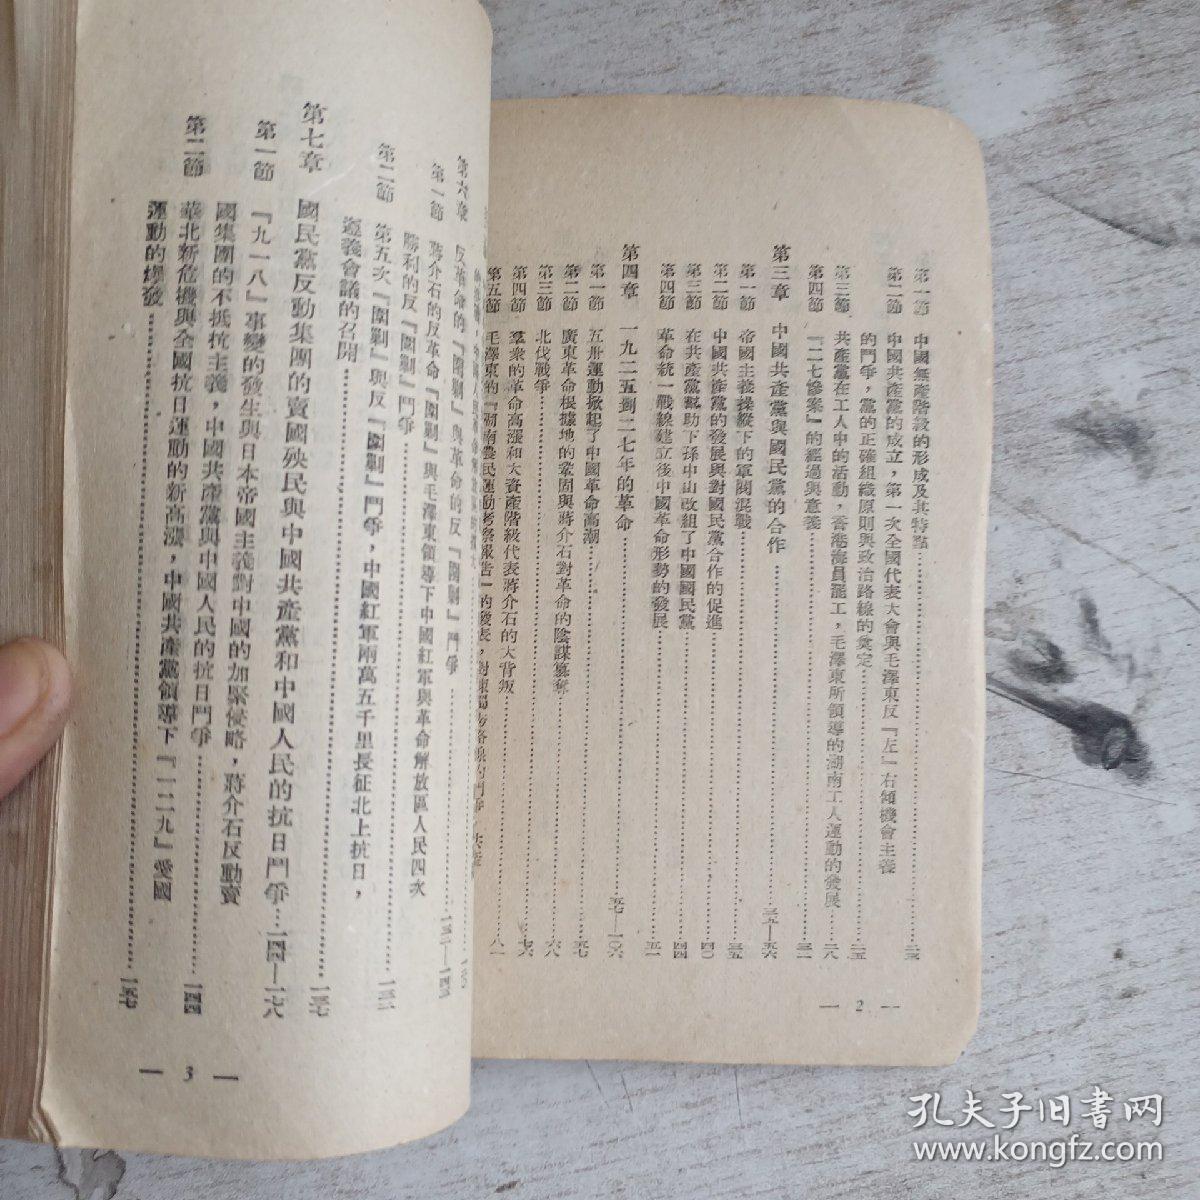 第一節 中國無產階級的形成及其特點 二三
第二節 中國共產黨的成立，第一次全國代表大會與毛澤東反『左』右傾機會主義
的鬥爭，黨的正確組織原則與政治路線的奠定 二五
第三節 共產黨在工人中的活動，香港海員罷工，毛澤東所領導的湖南工人運動的發展 二八
第四節 『二七慘案』的經過與意義 三二
第三章 中國共產黨與國民黨的合作 三五—五六
第一節 帝國主義操縱下的軍閥混戰 三五
第二節 中國共產黨的發展與對國民黨合作的促進 四〇
第三節 在共產黨幫助下孫中山改組了中國國民黨 四四
第四節 革命統一戰線建立後中國革命形勢的發展 五一
第四章 一九二五到二七年的革命 五七—一〇六
第一節 五卅運動掀起了中國革命高潮 五七
第二節 廣東革命根據地的鞏固與蔣介石對革命的陰謀篡奪 六八
第三節 北伐戰爭 七六
第四節 羣衆的革命高漲和大資產階級代表蔣介石的大背叛 八一
第五節 毛澤東的『湖南農民運動考察報告』的發表，對陳獨秀路線的鬥爭
— 2 —
第六章 反革命的『圍剿』與革命的反『圍剿』鬥爭
第一節 蔣介石的反革命『圍剿』與毛澤東領導下中國紅軍與革命解放區人民四次
勝利的反『圍剿』鬥爭
第二節 第五次『圍剿』與反『圍剿』鬥爭，中國紅軍兩萬五千里長征北上抗日，
遵義會議的召開 一三七
第七章 國民黨反動集團的賣國殃民與中國共產黨和中國人民的抗日鬥爭
第一節 『九一八』事變的發生與日本帝國主義對中國的加緊侵略，蔣介石反動賣
國集團的不抵抗主義，中國共產黨與中國人民的抗日鬥爭 一四四
第二節 華北新危機與全國抗日運動的新高漲，中國共產黨領導下『一二九』愛國
運動的爆發 一五七
— 3 —
孔夫子旧书网
www.kongfz.com